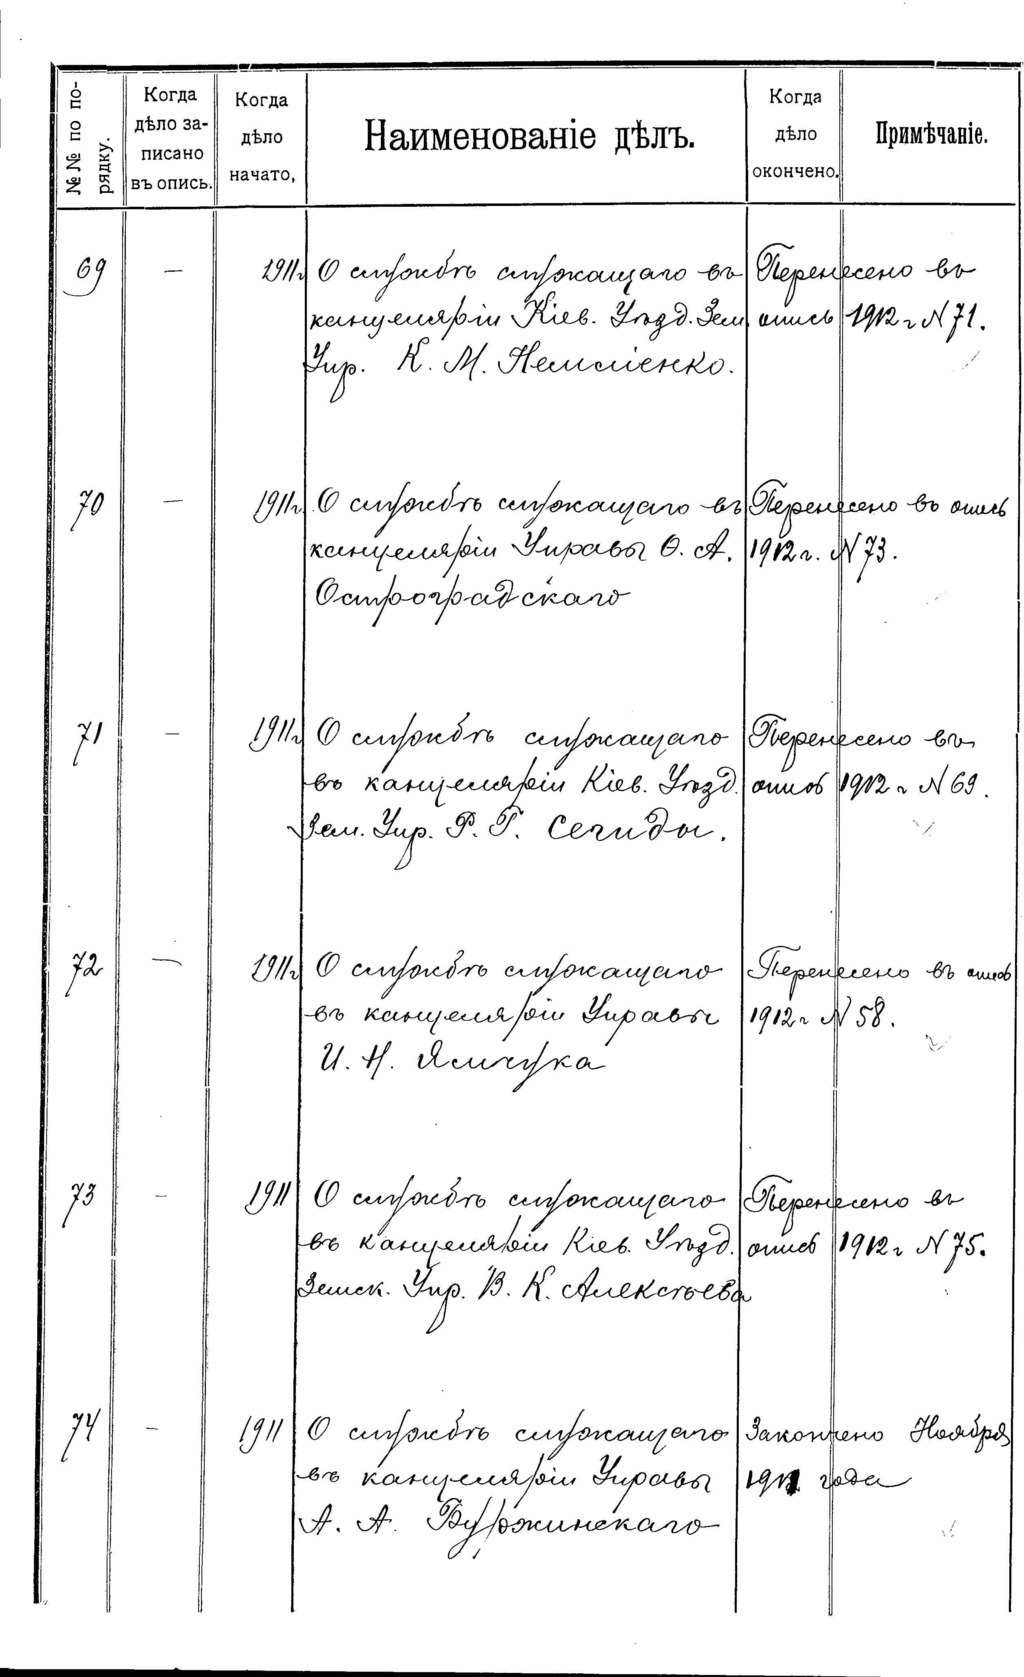 №№ по по-
рядку.
Когда
дѣло за-
писано
въ опись.
Когда
дѣло
начато,
Наименованіе дѣлъ.
Когда
дѣло
окончено.
Примѣчаніе.
69 — 1911г О службѣ служащаго въ Перенесено въ
канцеляріи Кіев. Уѣзд. Зем опись 1912 г N 71.
Упр. К. М.
70 — 1911г. О службѣ служащаго въ Перенесено въ опись
канцеляріи Управы О. А. 1912 г. N 73.
Остроградскаго
71 — 1911г О службѣ служащаго Перенесено въ
въ канцеляріи Кіев. Уѣзд. опись 1912 г N 69.
Зем. Упр. Р. Г. Сегиды.
72 — 1911г О службѣ служащаго Перенесено въ опись
въ канцеляріи Управы 1912 г N 58.
И. Н. Ямчука
73 — 1911 О службѣ служащаго Перенесено въ
въ канцеляріи Кіев. Уѣзд. опись 1912 г N 75.
Земск. Упр. В. К. Алексѣева
74 — 1911 О службѣ служащаго Закончено Ноября
въ канцеляріи Управы года
А. А. Буржинскаго